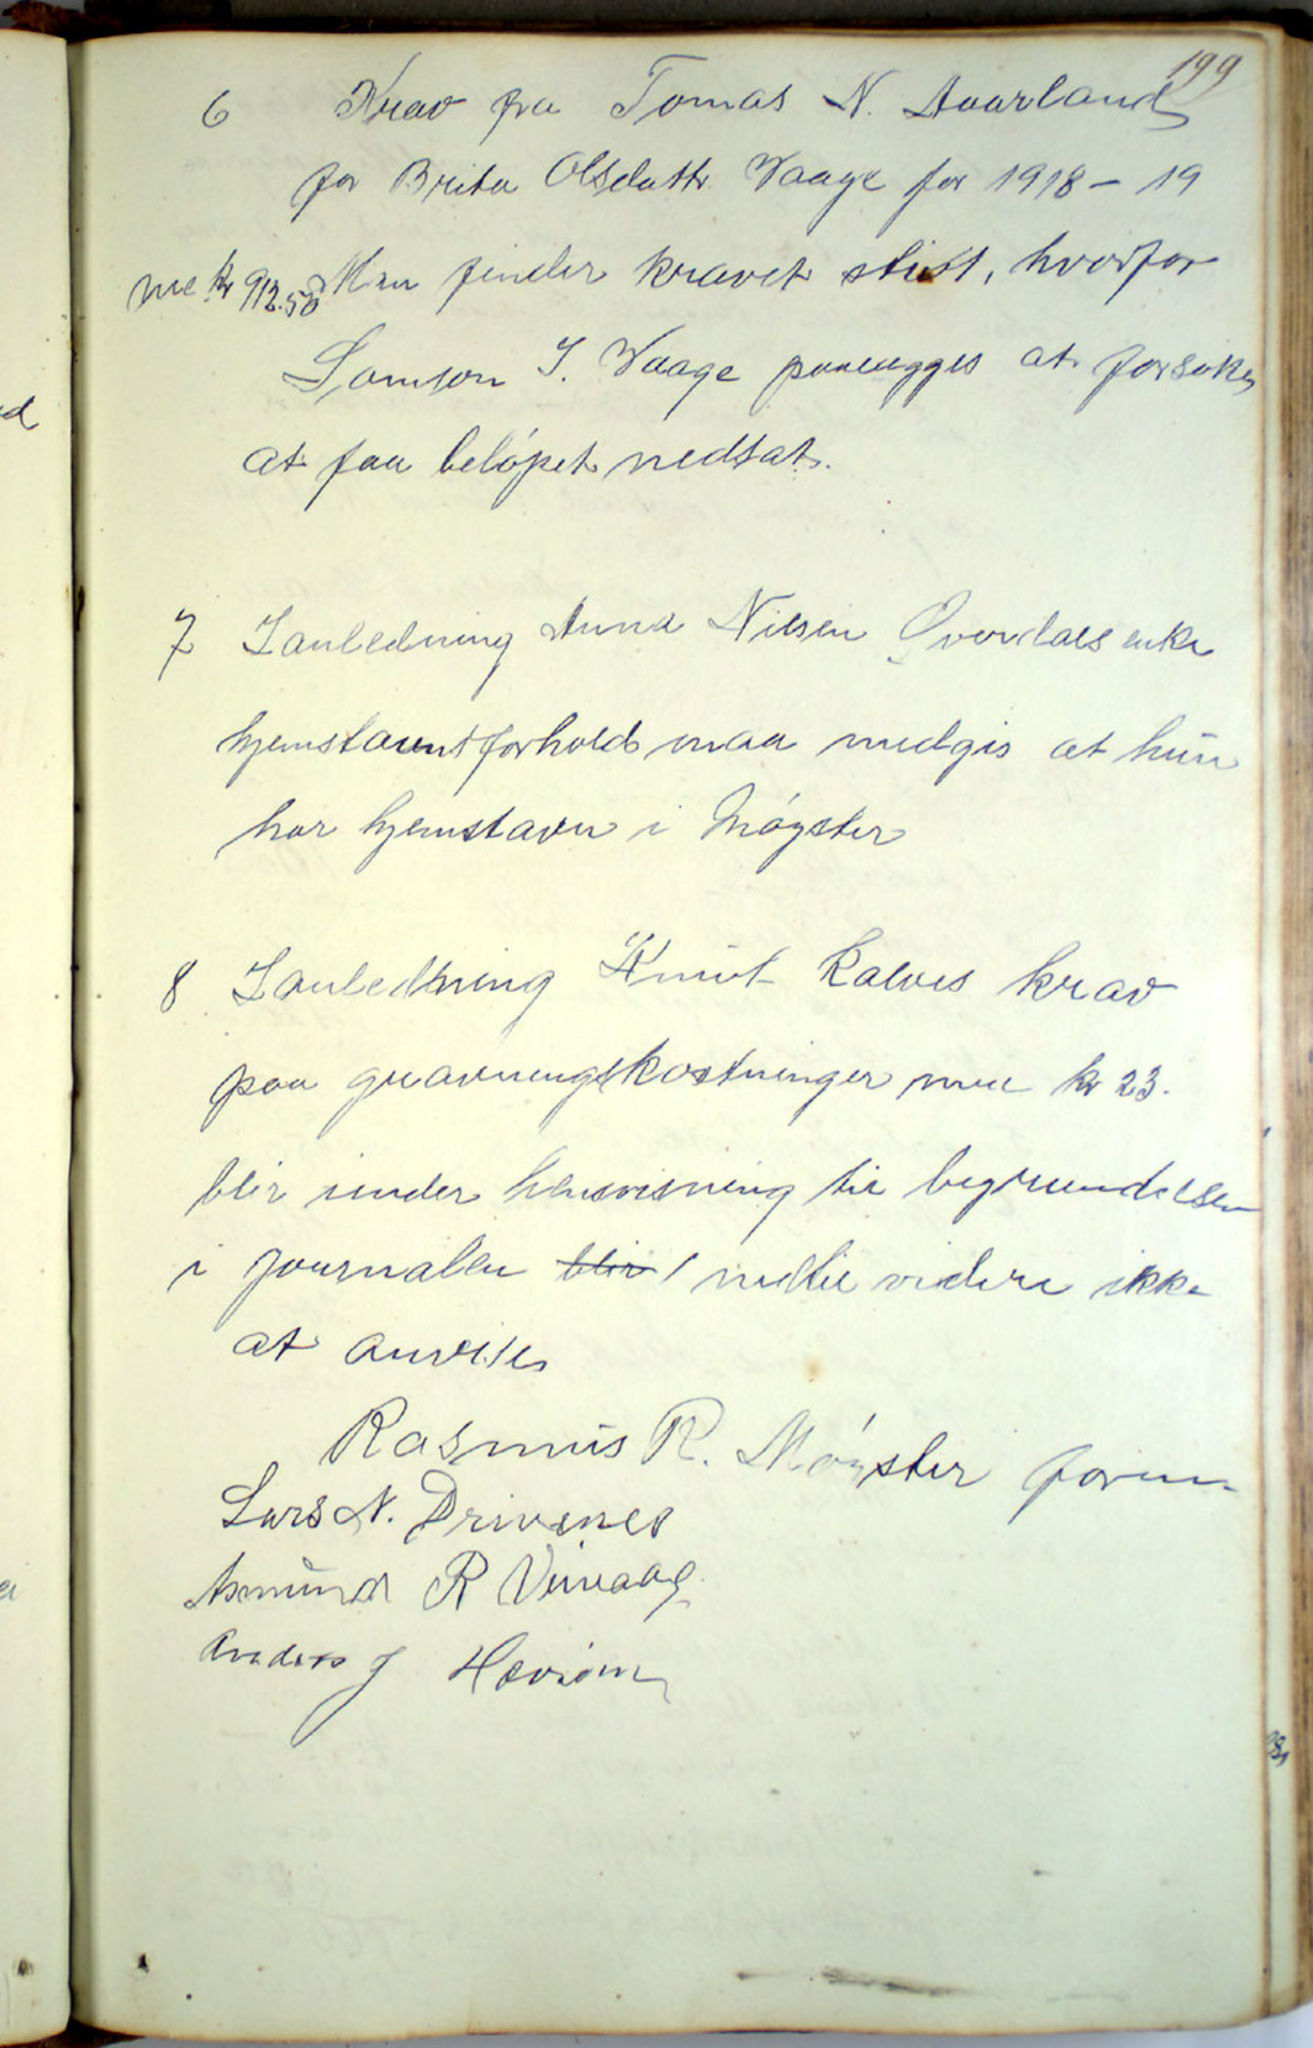 199
6 Krav fra Tomas N. Aarland
for Brita Olsdattr Vaage for 1918 – 19
me kr 912.50 Man finder kravet stist, hvorfor
Samson J. Vaage paalægges at forsøke
at faa beløpet nedsat.
7 I anledning Anna Nilsen Överdals enke
hjemstavnsforhold maa medgis at hun
har hjemstavn i Møgster
8 I anledning Knut Kalves krav
paa gravningskostninger me kr 23.
blir under henvisning til begrundelsen
i journalen blir / indtil videre ikke
at anvise
Rasmus R. Møgster form.
Lars N. Drivenes
Asmund R Vinvaag
Anders J